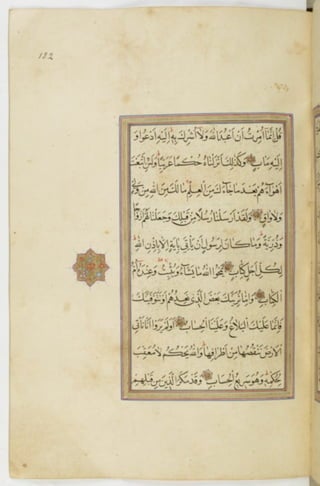 132
قُلْ إِنَّمَا أُمِرْتُ أَنْ أَعْبُدَ اللَّهَ وَلَا أُشْرِكَ بِهِ إِلَيْهِ أَدْعُوا وَ
إِلَيْهِ مَآبِ وَكَذَلِكَ أَنْزَلْنَاهُ حُكْمًا عَرَبِيًّا وَلَئِنِ اتَّبَعْتَ
أَهْوَاءَهُمْ بَعْدَ مَا جَاءَكَ مِنَ الْعِلْمِ مَا لَكَ مِنَ اللَّهِ مِنْ وَلِيٍّ
وَلَا وَاقٍ وَلَقَدْ أَرْسَلْنَا رُسُلًا مِنْ قَبْلِكَ وَجَعَلْنَا لَهُمْ أَزْوَاجًا
وَذُرِّيَّةً وَمَا كَانَ لِرَسُولٍ أَنْ يَأْتِيَ بِآيَةٍ إِلَّا بِإِذْنِ اللَّهِ
لِكُلِّ أَجَلٍ كِتَابٌ يَمْحُوا اللَّهُ مَا يَشَاءُ وَيُثْبِتُ وَعِنْدَهُ أُمُّ
الْكِتَابِ وَإِنْ مَا نُرِيَنَّكَ بَعْضَ الَّذِي نَعِدُهُمْ أَوْ نَتَوَفَّيَنَّكَ
فَإِنَّمَا عَلَيْكَ الْبَلَاغُ وَعَلَيْنَا الْحِسَابُ أَوَلَمْ يَرَوْا أَنَّا نَأْتِي
الْأَرْضَ نَنْقُصُهَا مِنْ أَطْرَافِهَا وَاللَّهُ يَحْكُمُ لَا مُعَقِّبَ
لِحُكْمِهِ وَهُوَ سَرِيعُ الْحِسَابِ وَقَدْ مَكَرَ الَّذِينَ مِنْ قَبْلِهِمْ